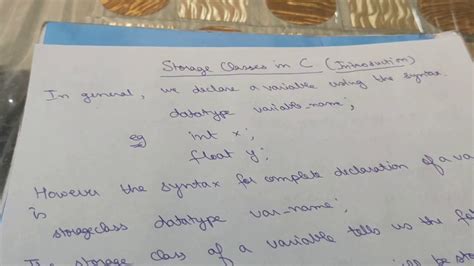 Storage Classes in C (Introduction)
In general, we declare a variable using the syntax.
datatype variable_name;
eg int x;
float y;
However the syntax for complete declaration of a va
is
storageclass datatype var_name;
The storage class of a variable tells us the
will be